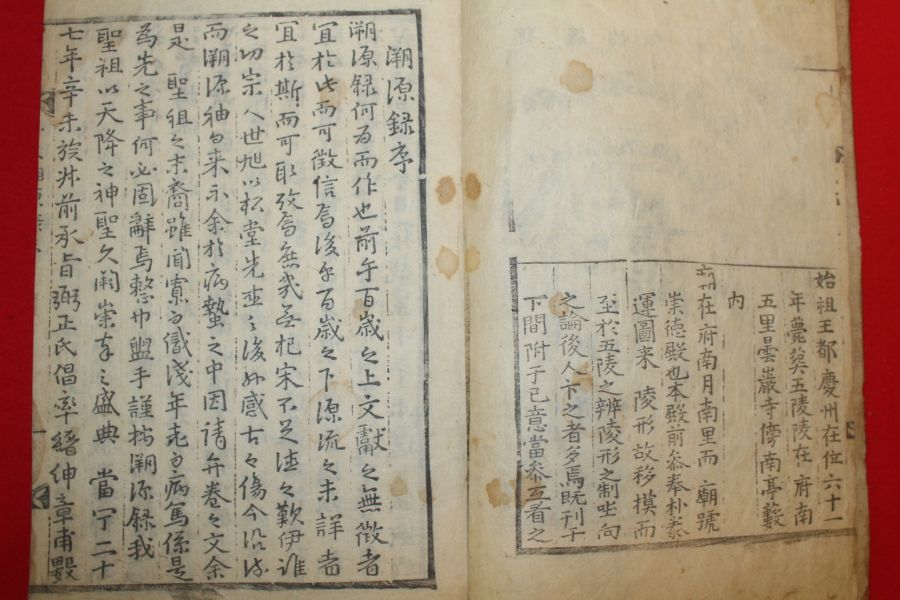 始祖王都慶州在位六十一
年薨奠五陵陵在府南
五里曇巖寺傍南亭藪
內
在府南月南里而 廟號
崇德殿也本殿前叅奉朴
運圖来 陵形故移摸而
至於五陵之辨陵形之制坐向
之論後人卞之者多焉既刊于
下間附于己意當叅互看之
溯源録序
溯源録何為而作也前乎百歲之上文獻之無徵者
宜於此而可徵信焉後乎百歲之下源流之未詳者
宜於斯而可取攷焉無我無杞宋不足徵之歎伊誰
之功宗人世旭以松堂先生之後孫感古傷今沿流
而溯源袖勾来示余於病蟄之中因請弁卷之文余
是 聖祖之末裔雖聞寡而識淺年老而病篤係是
為先之事何必固辭焉整巾盥手謹按溯源録我
聖祖以天降之神聖久闕崇奉之盛典 當宁二十
七年辛未旅 前承旨弼正氏倡率縉紳章甫